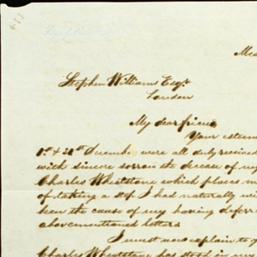 Mes
Stephen William Esqr
London
My dear friend
Your esteem
1st & 21st December were all duly received
with sincere sorrow the decease of my
Charles Whetstone which places m
of taking a step I had naturally wi
been the cause of my having deferr
abovementioned letters
I must now explain to y
Charles Whetstone has stood in my